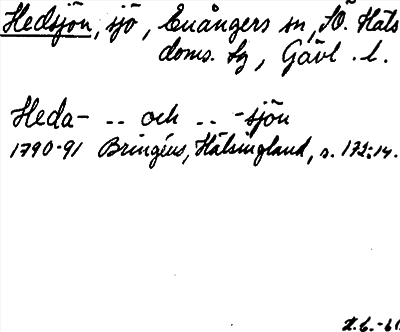 Hedsjön, sjö, Enångers sn, SÖ. Häls
doms. Sg, Gävl. l.
Heda- .. och .. -sjön
1790-91 Bringéus, Hälsingland, s. 172:14.